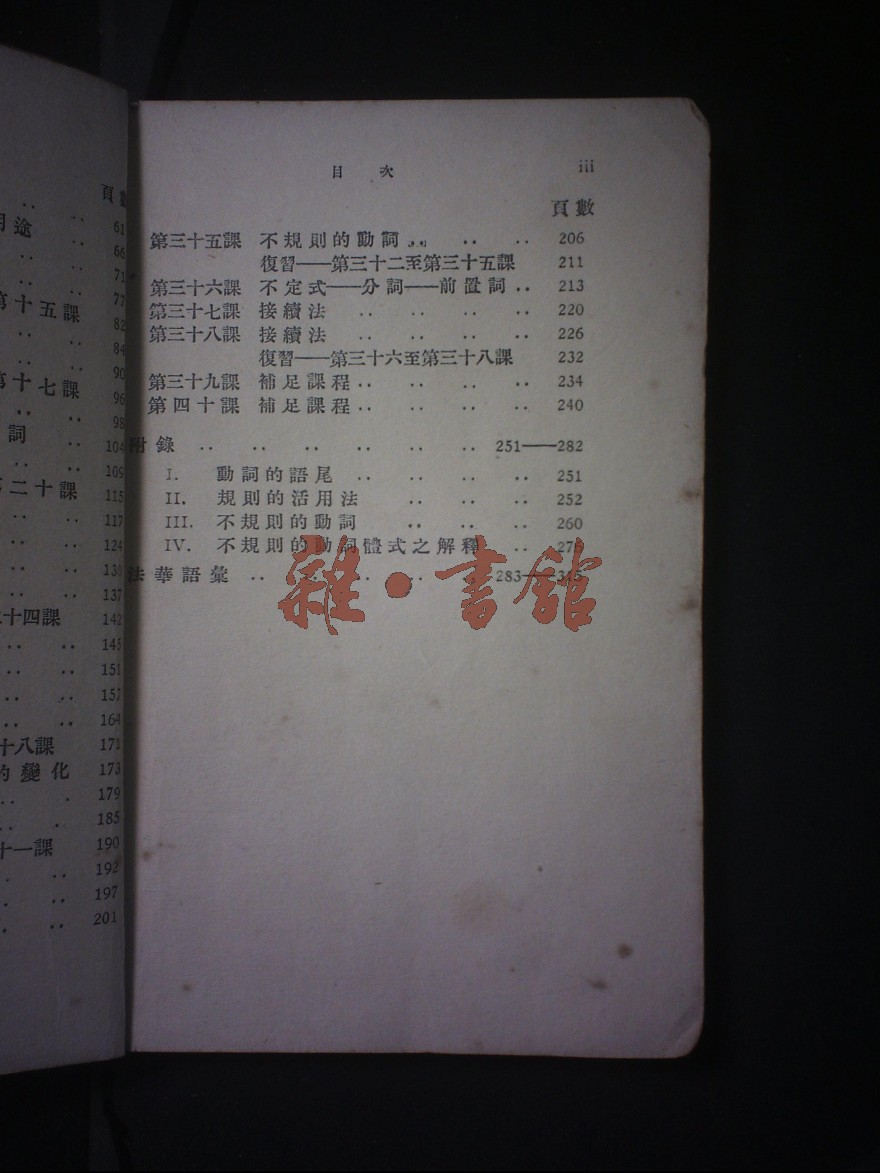 頁數
用途 .. .. 61
.. .. 66
.. .. 71
.. .. 77
第十五課 82
.. 84
.. 90
第十七課 96
.. 98
詞 .. 104
.. 109
第二十課 115
.. .. 117
.. .. 124
.. .. 130
.. .. 137
二十四課 142
.. .. 145
.. .. 151
.. .. 157
.. .. 164
十八課 171
的變化 173
.. . 179
.. . 185
十一課 190
. .. 192
. .. 197
. .. 201
目 次 iii
頁數
第三十五課 不規則的動詞 .. .. .. 206
復習——第三十二至第三十五課 211
第三十六課 不定式——分詞——前置詞 .. 213
第三十七課 接續法 .. .. .. .. 220
第三十八課 接續法 .. .. .. .. 226
復習——第三十六至第三十八課 232
第三十九課 補足課程 .. .. .. .. 234
第四十課 補足課程 .. .. .. .. 240
附錄 .. .. .. .. .. .. 251——282
I. 動詞的語尾 .. .. .. .. 251
II. 規則的活用法 .. .. .. 252
III. 不規則的動詞 .. .. .. 260
IV. 不規則的動詞體式之解釋 .. ..
法華語彙 .. .. .. .. .. 283——315
雜·書館